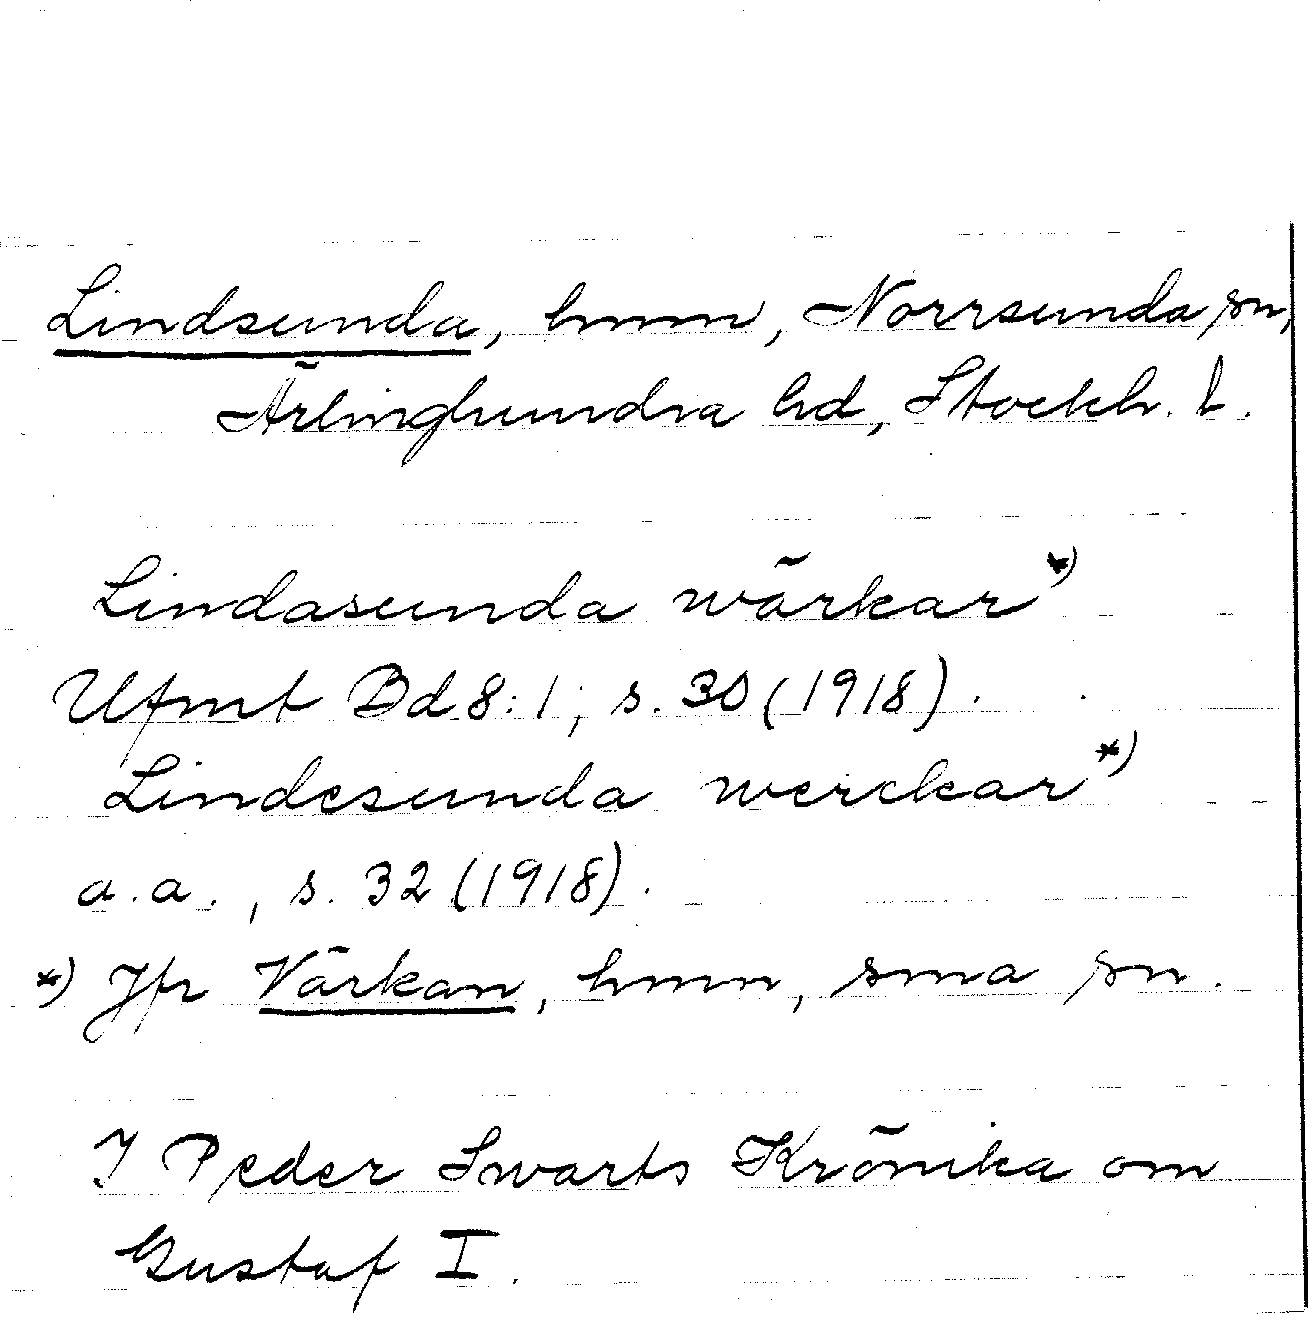 Lindsunda, hmm, Norrsunda sn,
Ärlinghundra hd, Stockh. l.
Lindasunda wärkar*)
Ufmt Bd 8:1, s. 30 (1918).
Lindesunda werckar*)
a.a., s. 32 (1918).
*) Jfr Värkan, hmn, sma sn.
I Peder Swarts Krönika om
Gustaf I.